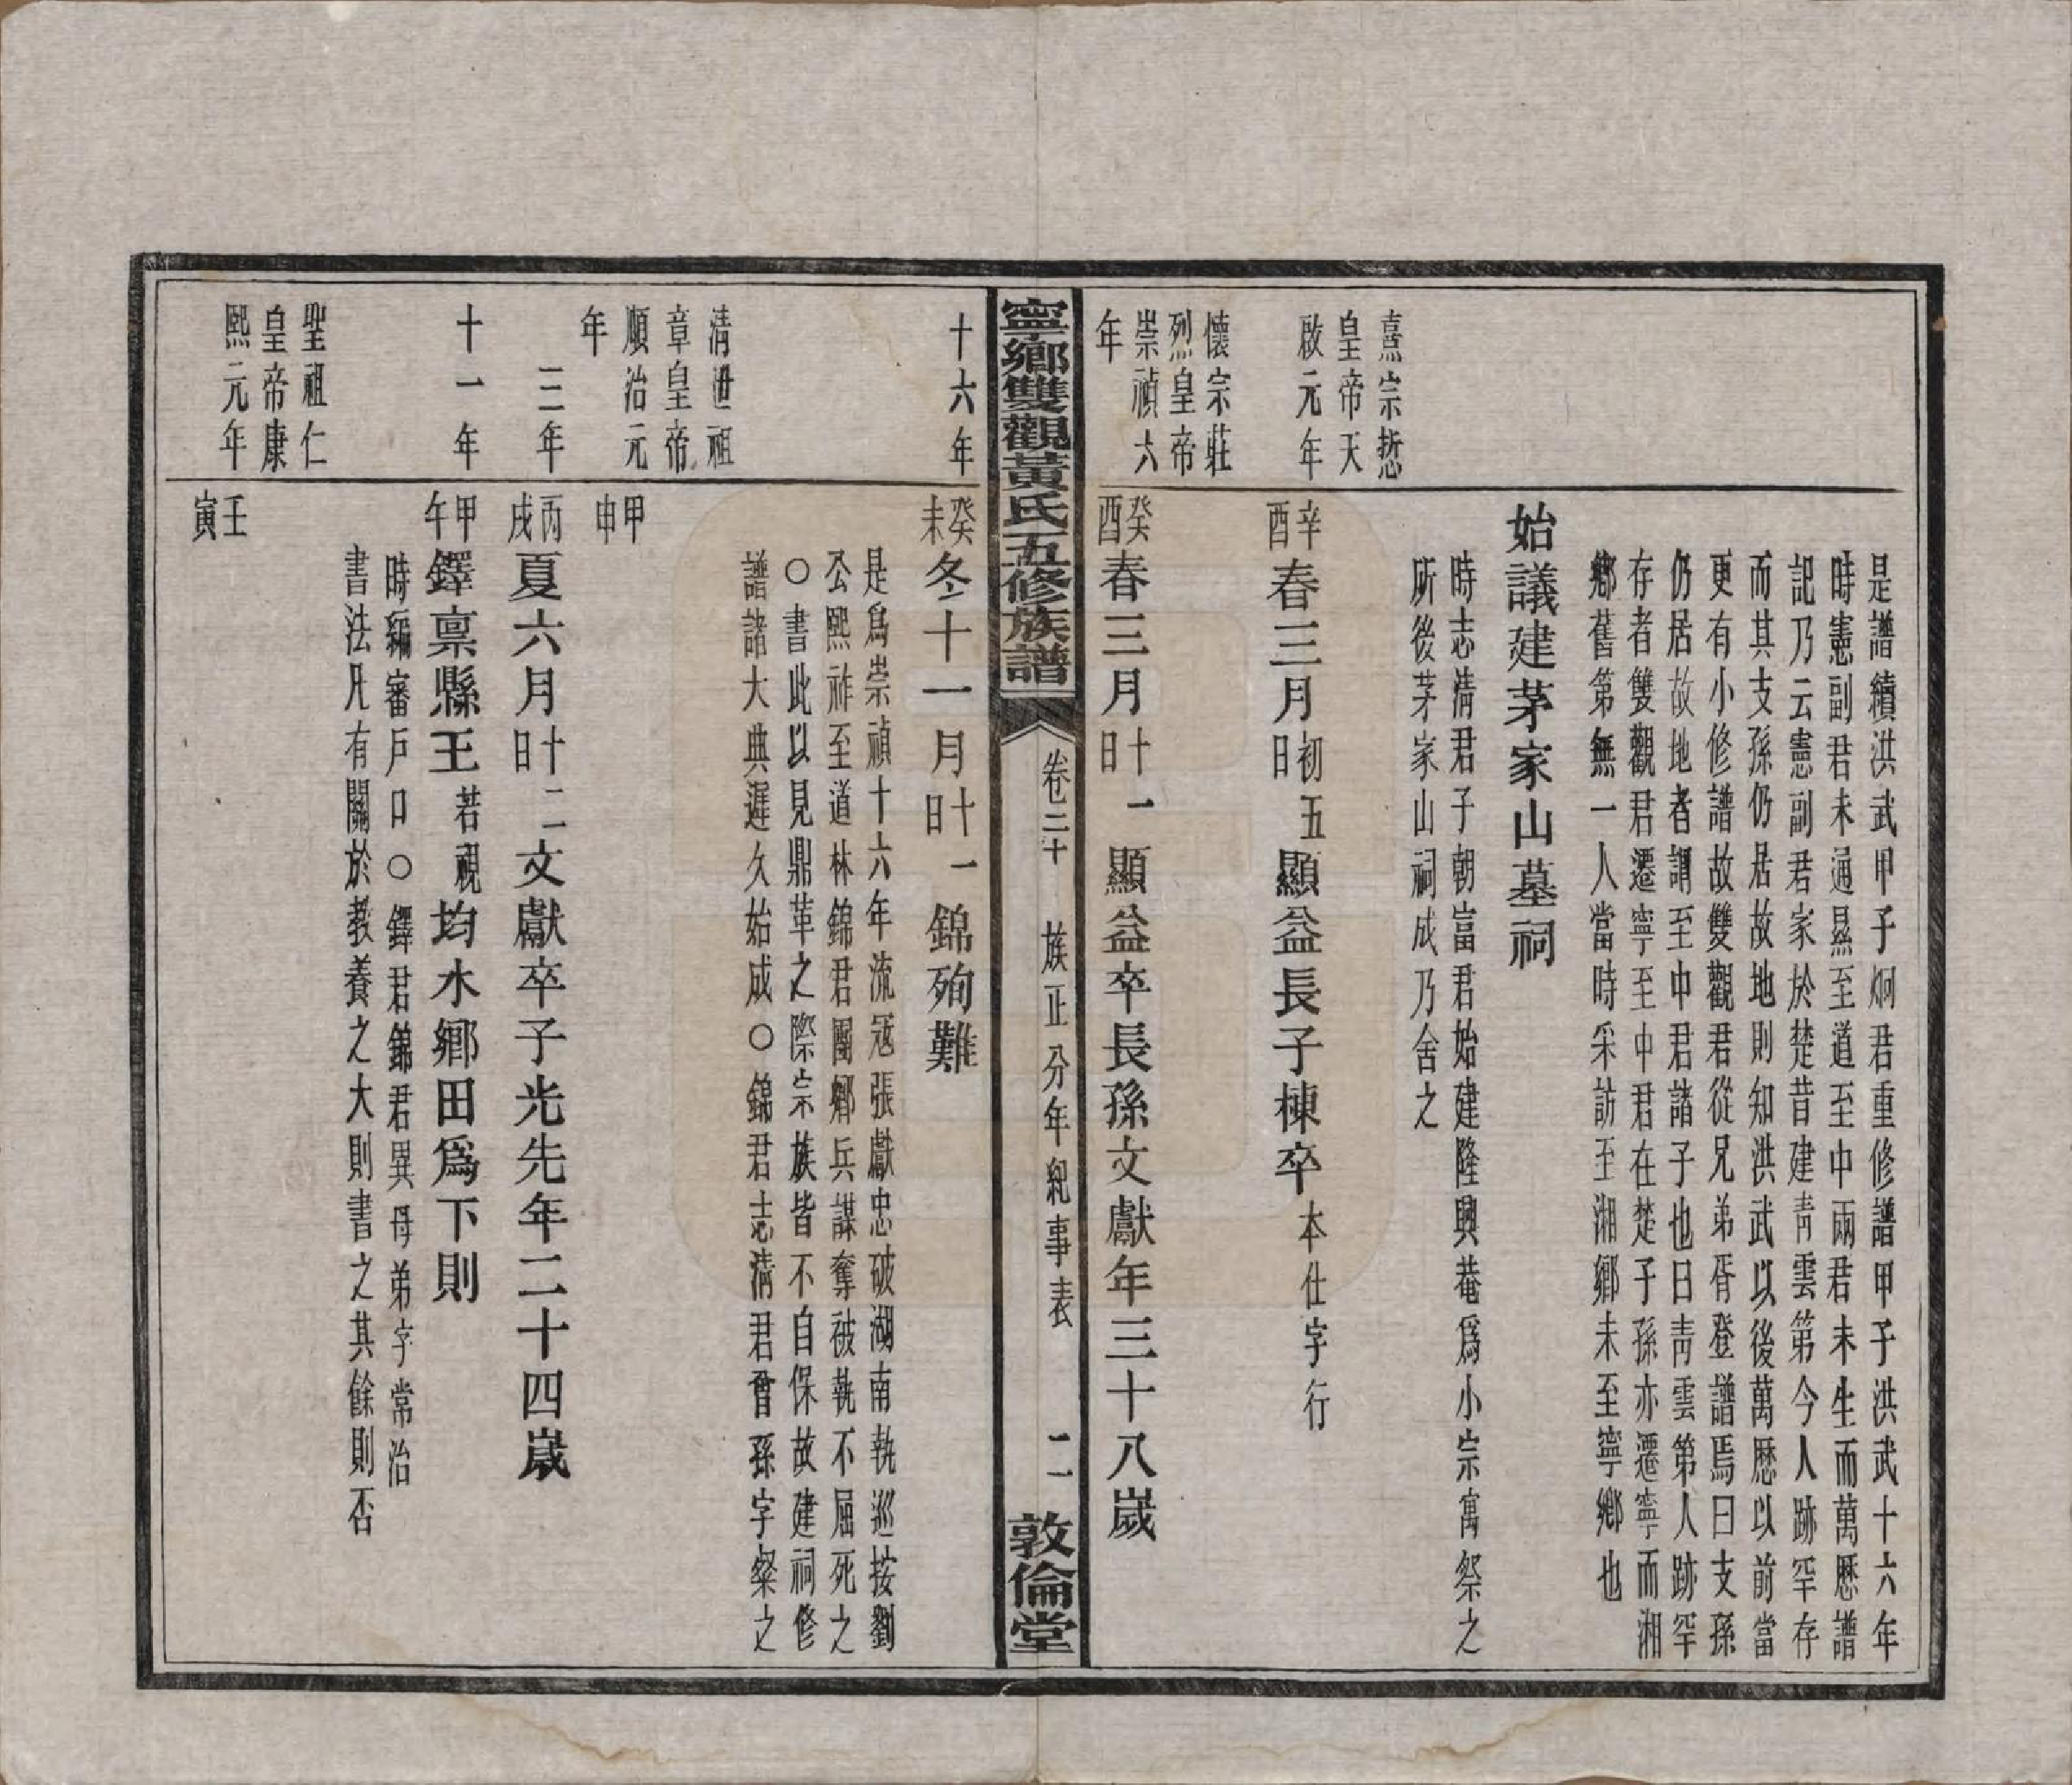 是譜續洪武甲子炯君重修譜甲子洪武十六年
時憲副君未通顯至道至中兩君未生而萬歷譜
記乃云憲副君家於楚昔建青雲第今人跡罕存
而其支孫仍居故地則知洪武以後萬歷以前當
更有小修譜故雙觀君從兄弟胥登譜焉曰支孫
仍居故地者謂至中君諸子也曰靑雲第人跡罕
存者雙觀君遷寧至中君在楚子孫亦遷寧而湘
鄉舊第無一人當時采訪至湘鄉未至寧鄉也
始議建茅家山墓祠
時志淸君子朝富君始建隆興菴爲小宗寓祭之
所後茅家山祠成乃舍之
熹宗悊
皇帝天
啟元年
辛酉春三月初五日顯益長子棟卒本仕字行
懷宗莊
烈皇帝
崇禎六
年
癸酉春三月十一日顯益卒長孫文獻年三十八歲
寧鄉雙觀黃氏五修族譜 卷二十 族正分年紀事表 二 敦倫堂
十六年
癸未冬十一月十一日錦殉難
是爲崇禎十六年流寇張獻忠破湖南執巡按劉
公熙祚至道林錦君團鄉兵謀奪被執不屈死之
○書此以見鼎革之際宗族皆不自保故建祠修
譜諸大典遲久始成○錦君志淸君曾孫字粲之
清世祖
章皇帝
順治元
年
甲申
三年
丙戌夏六月十二日文獻卒子光先年二十四歲
十一年
甲午鐸禀縣王若視均水鄉田爲下則
時編審戶口○鐸君錦君異母弟字常治
書法凡有關於敎養之大則書之其餘則否
聖祖仁
皇帝康
熙元年
壬寅